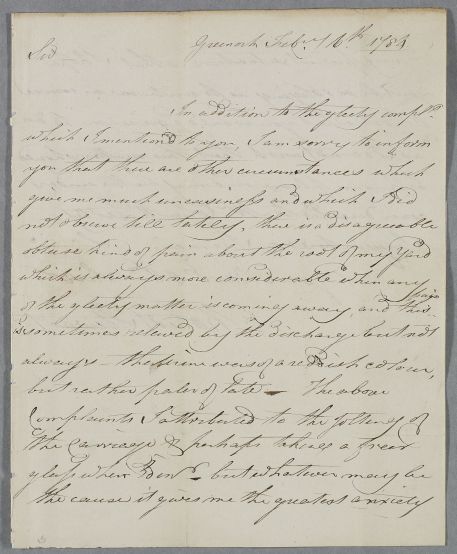 Greenock Feb.y 16th 1784
Sir
In addition to the gleety compt.
which I mention'd to you, I am sorry to inform
you that there are other circumstances which
give me much uneasiness and which I did
not observe till lately, there is a disagreeable
obtuse kind of pain about the root of my Yard
which is always more considerable when any
of the gleety matter is coming away, and this pain
is sometimes relieved by the discharge but not
always – the urine was of a redish colour,
but rather paler of late – The above
Complaints I attributed to the jolting of
the Carriage & perhaps taking a freer
glass when – but whatever may be
the cause it gives me the greatest anxiety